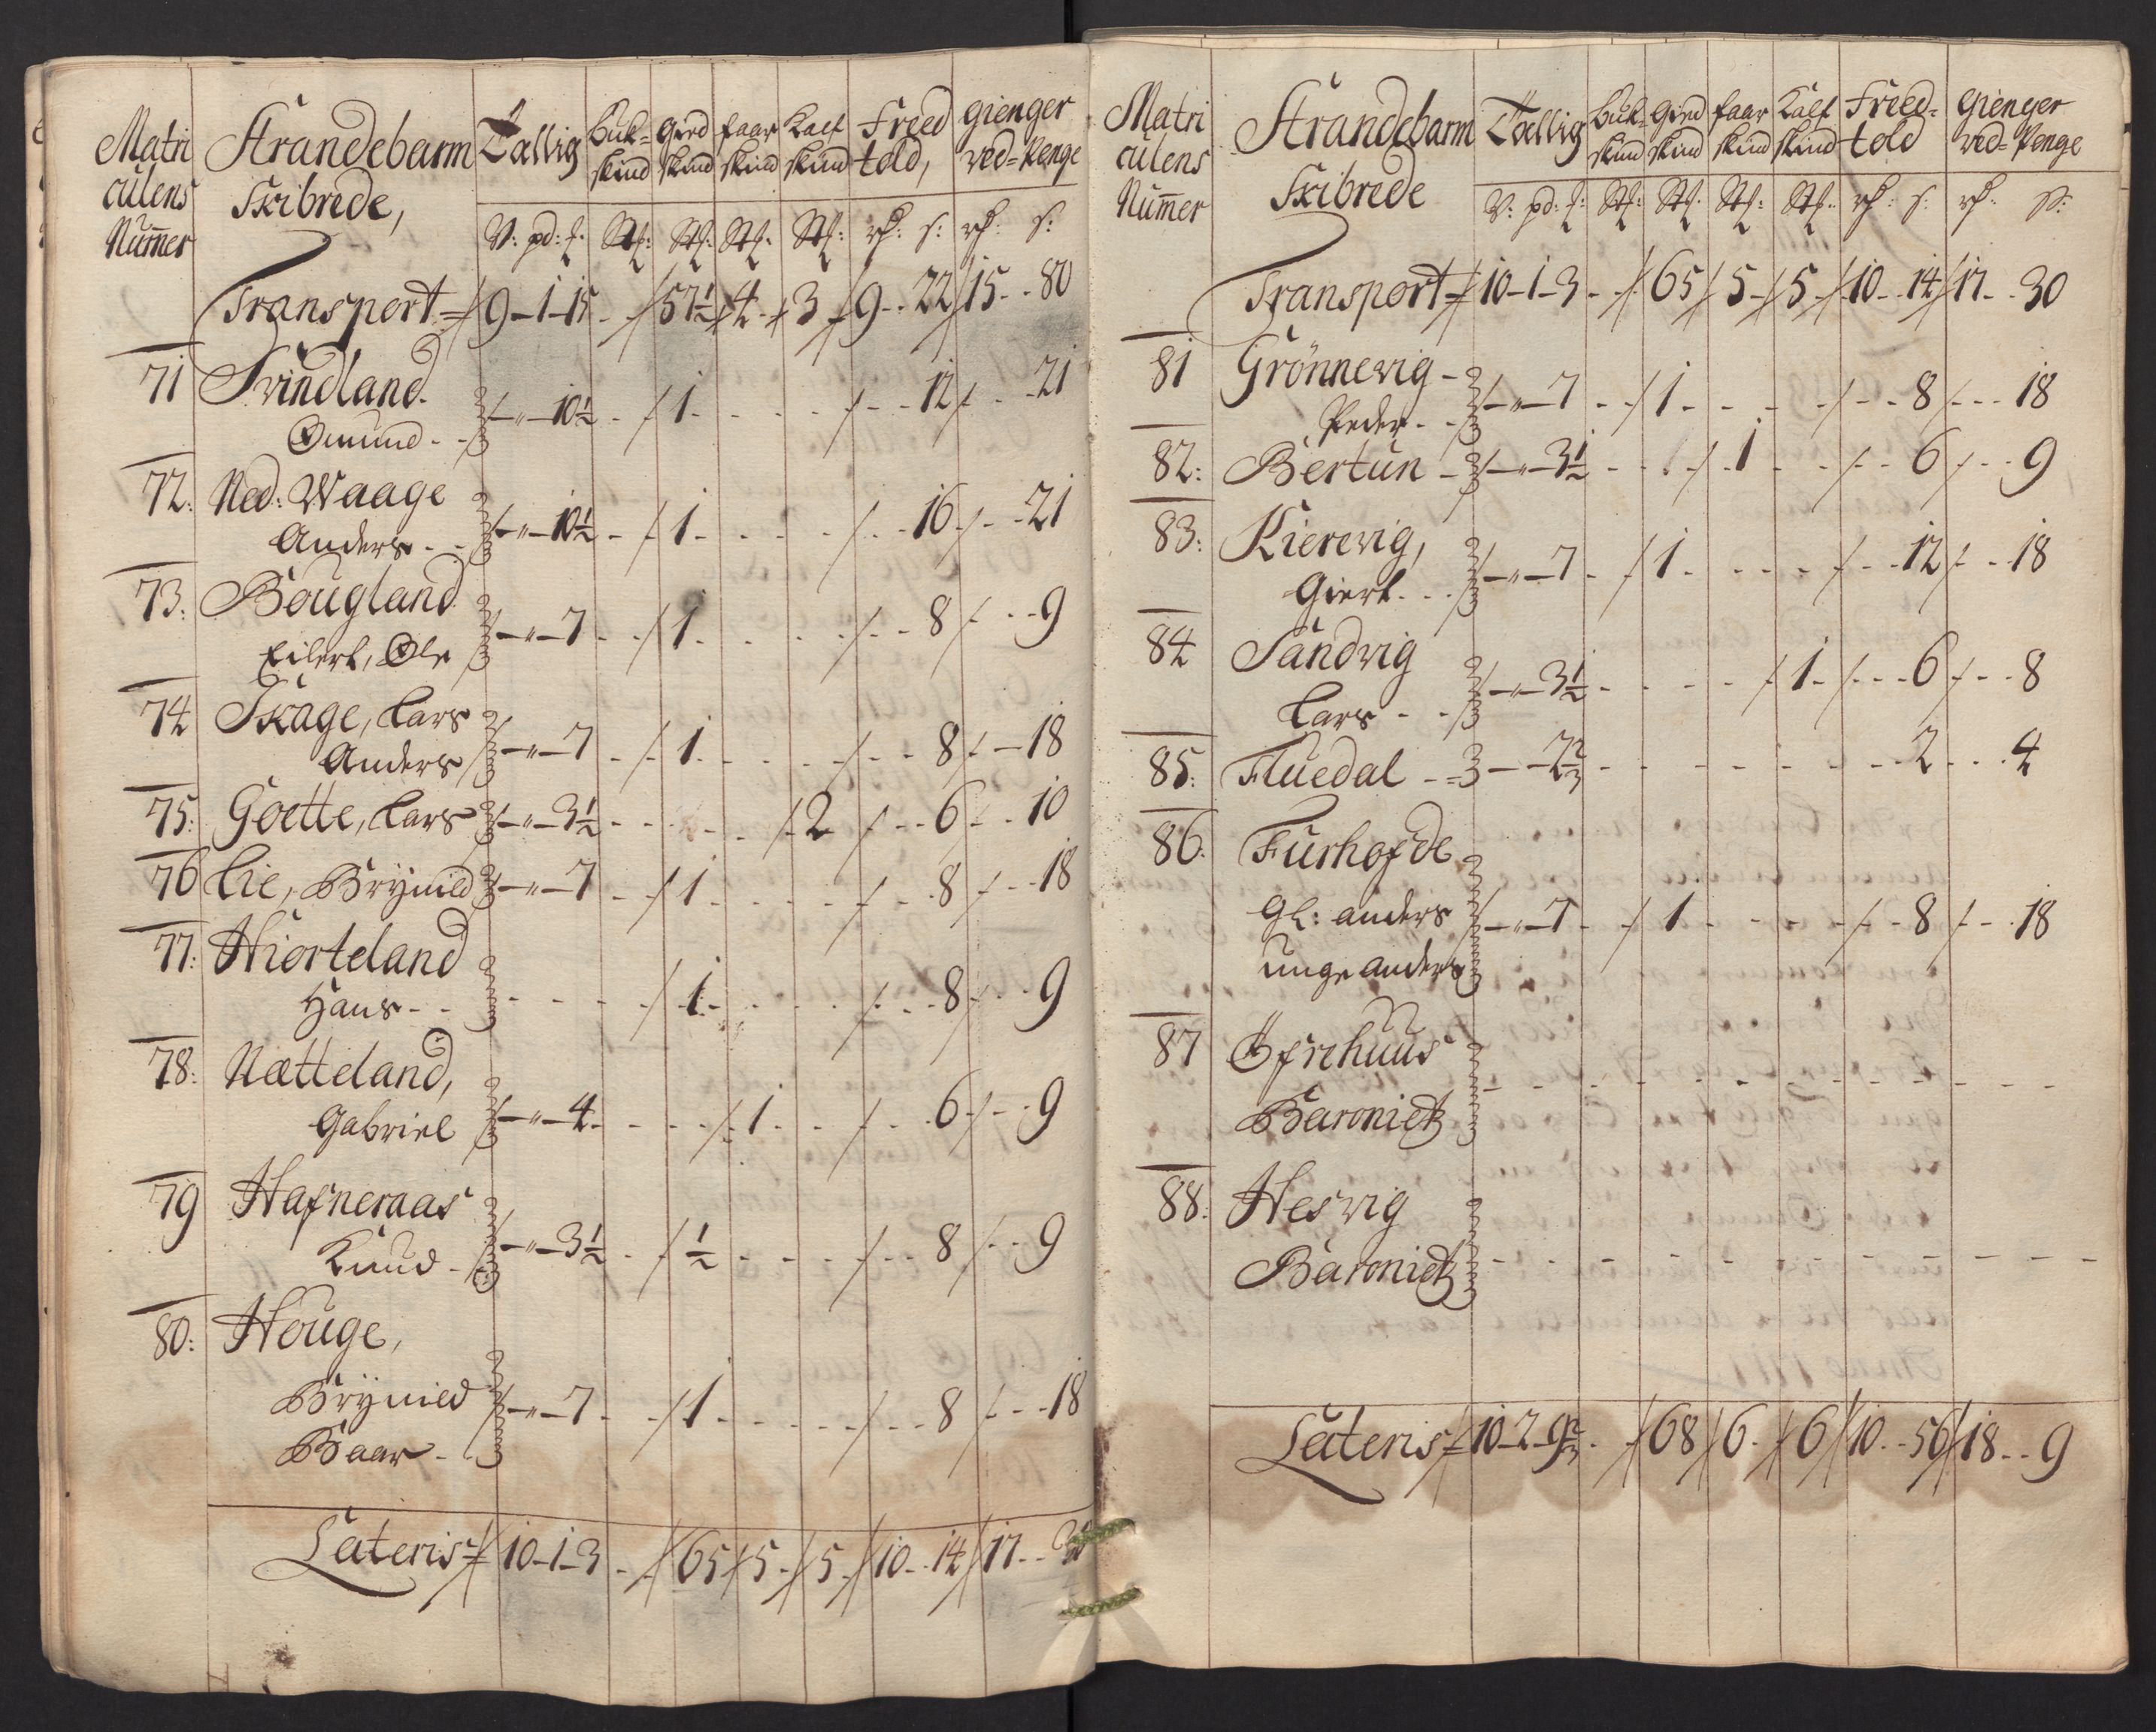 Matri
culens
Nummer
Strandebarm
Skibrede,
Tallig
Buk=
skind
Gied
skind
faar
skind
Kalf
skind
Freed
told,
gienger
ved=Penge
V: pd: f. St: St: St: St: rd: s: rd: s:
Transport 9-1-15 57½ 4 3 9 22 15 80
71 Svindland
Omund 10½ 1 12 21
72. Ned: Waage
Anders 10½ 1 16 21
73. Bougland
Eilert, Ole 7 1 8 9
74 Skage, Lars
Anders 7 1 8 18
75: Goette, Lars 3½ 2 6 10
76 Lie, Brynild 7 1 8 18
77: Hiorteland
Hans 1 8 9
78: Nætteland,
Gabriel 4 1 6 9
79 Hafneraas
Knud 3½ ½ 8 9
80: Houge,
Brynild
Baar 7 1 8 18
Lateris 10-1-3 65 5 5 10 14 17 30
Matri
culens
Nummer
Strandebarm
Skibrede
Tællig
Buk=
skind
Gied
skind
faar
skind
Kalf
skind
Freed=
told
Gienger
ved=Penge
V: pd: f: St: St: St: St: rd: s: rd: s:
Transport 10-1-3 65 5 5 10 14 17 30
81 Grönnevig
Peder 7 1 8 18
82: Bertun 3½ 1 6 9
83: Kierevig,
Giert 7 1 12 18
84 Sandvig
Lars 3½ 1 6 8
85: Fluedal 2⅔ 2 4
86. Furhofde
Gl: anders
unge anders 7 1 8 18
87 Öfrehuus
Baroniet
88: Hesvig
Baroniet
Lateris 10-2-9⅔ 68 6 6 10 56 18 9